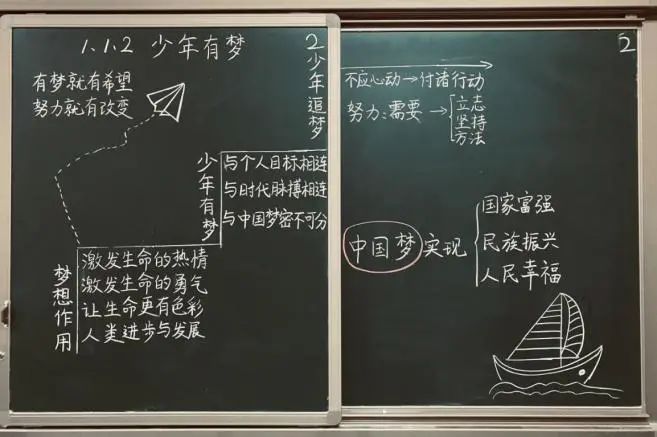 1.1.2 少年有梦
2
有梦就有希望
努力就有改变
梦想作用
激发生命的热情
激发生命的勇气
让生命更有色彩
人类进步与发展
少年有梦
与个人目标相连
与时代脉搏相连
与中国梦密不可分
少年追梦
2
不应心动→付诸行动
努力:需要→
立志
坚持
方法
中国梦实现
国家富强
民族振兴
人民幸福